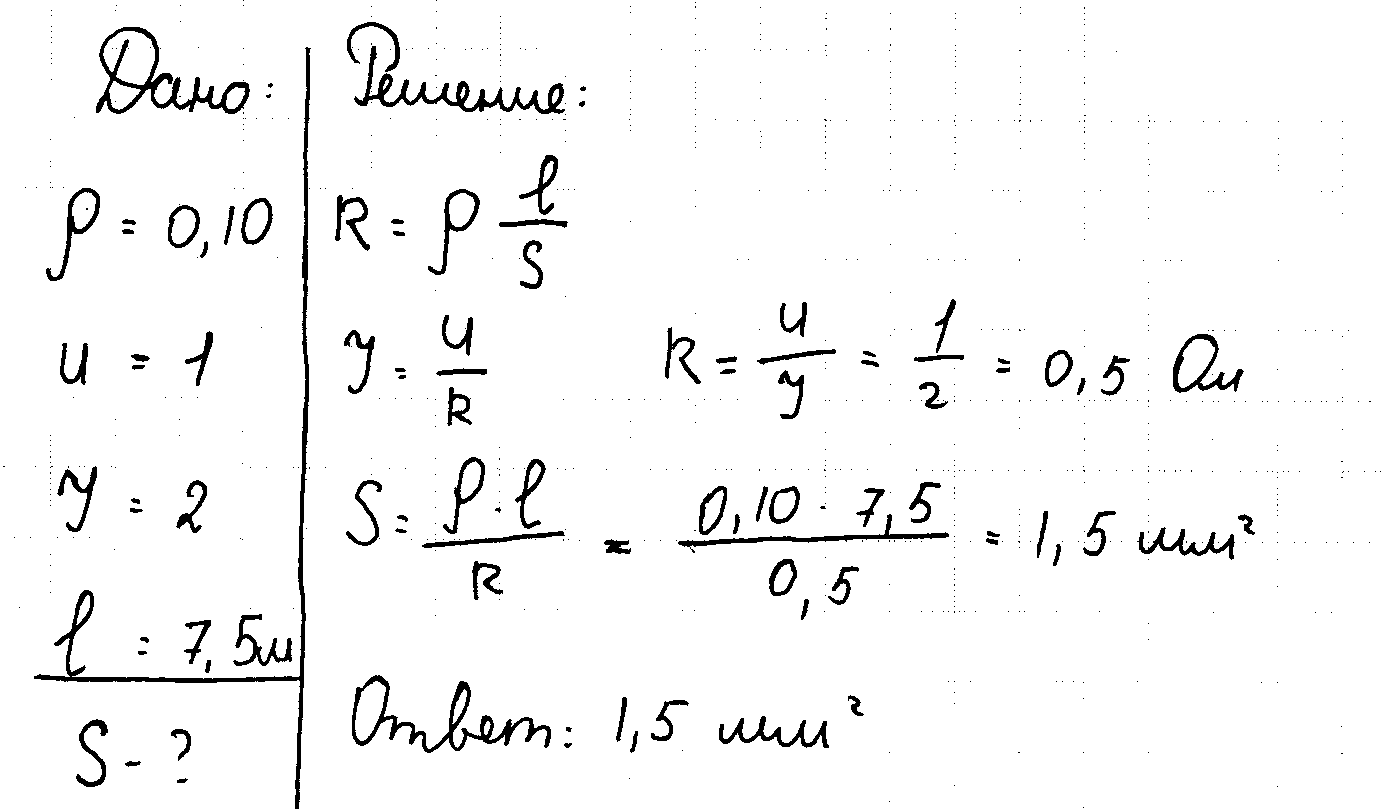 Дано:
ρ = 0,10
U = 1
У = 2
l = 7,5м
S - ?
Решение:
R = ρ l/S
У = U/R   R = U/У = 1/2 = 0,5 Ом
S = ρ·l/R = 0,10 · 7,5/0,5 = 1,5 мм²
Ответ: 1,5 мм²